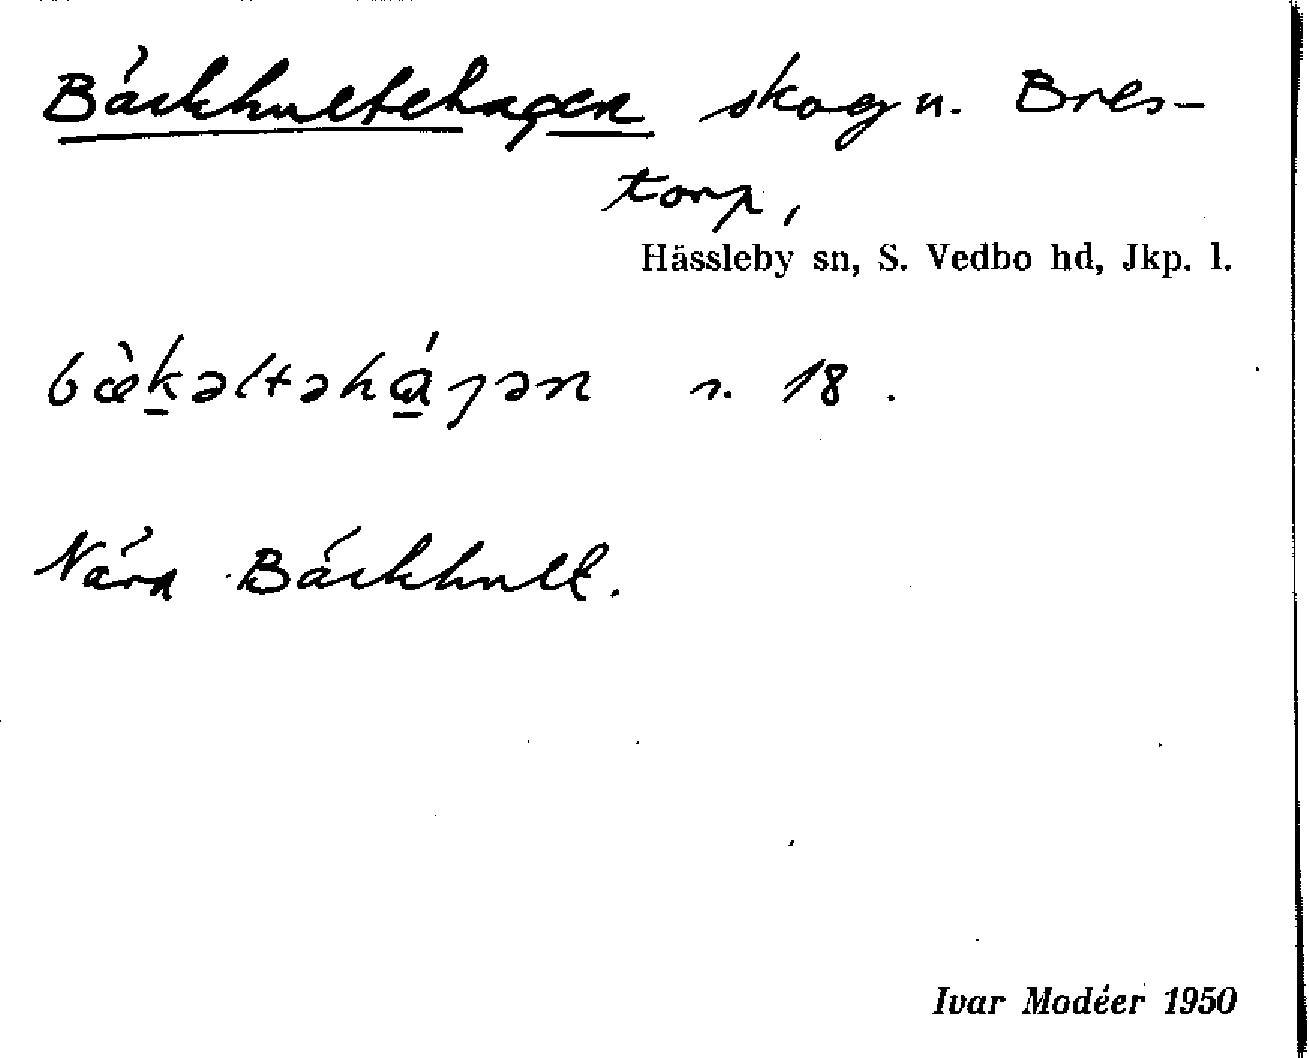 Bäckhultehagen skog u. Bres-
torp,
Hässleby sn, S. Vedbo hd, Jkp. l.
bæ̀k̲əltəhɑ̲́ɡən s. 18.
Nära Bäckhult.
Ivar Modéer 1950